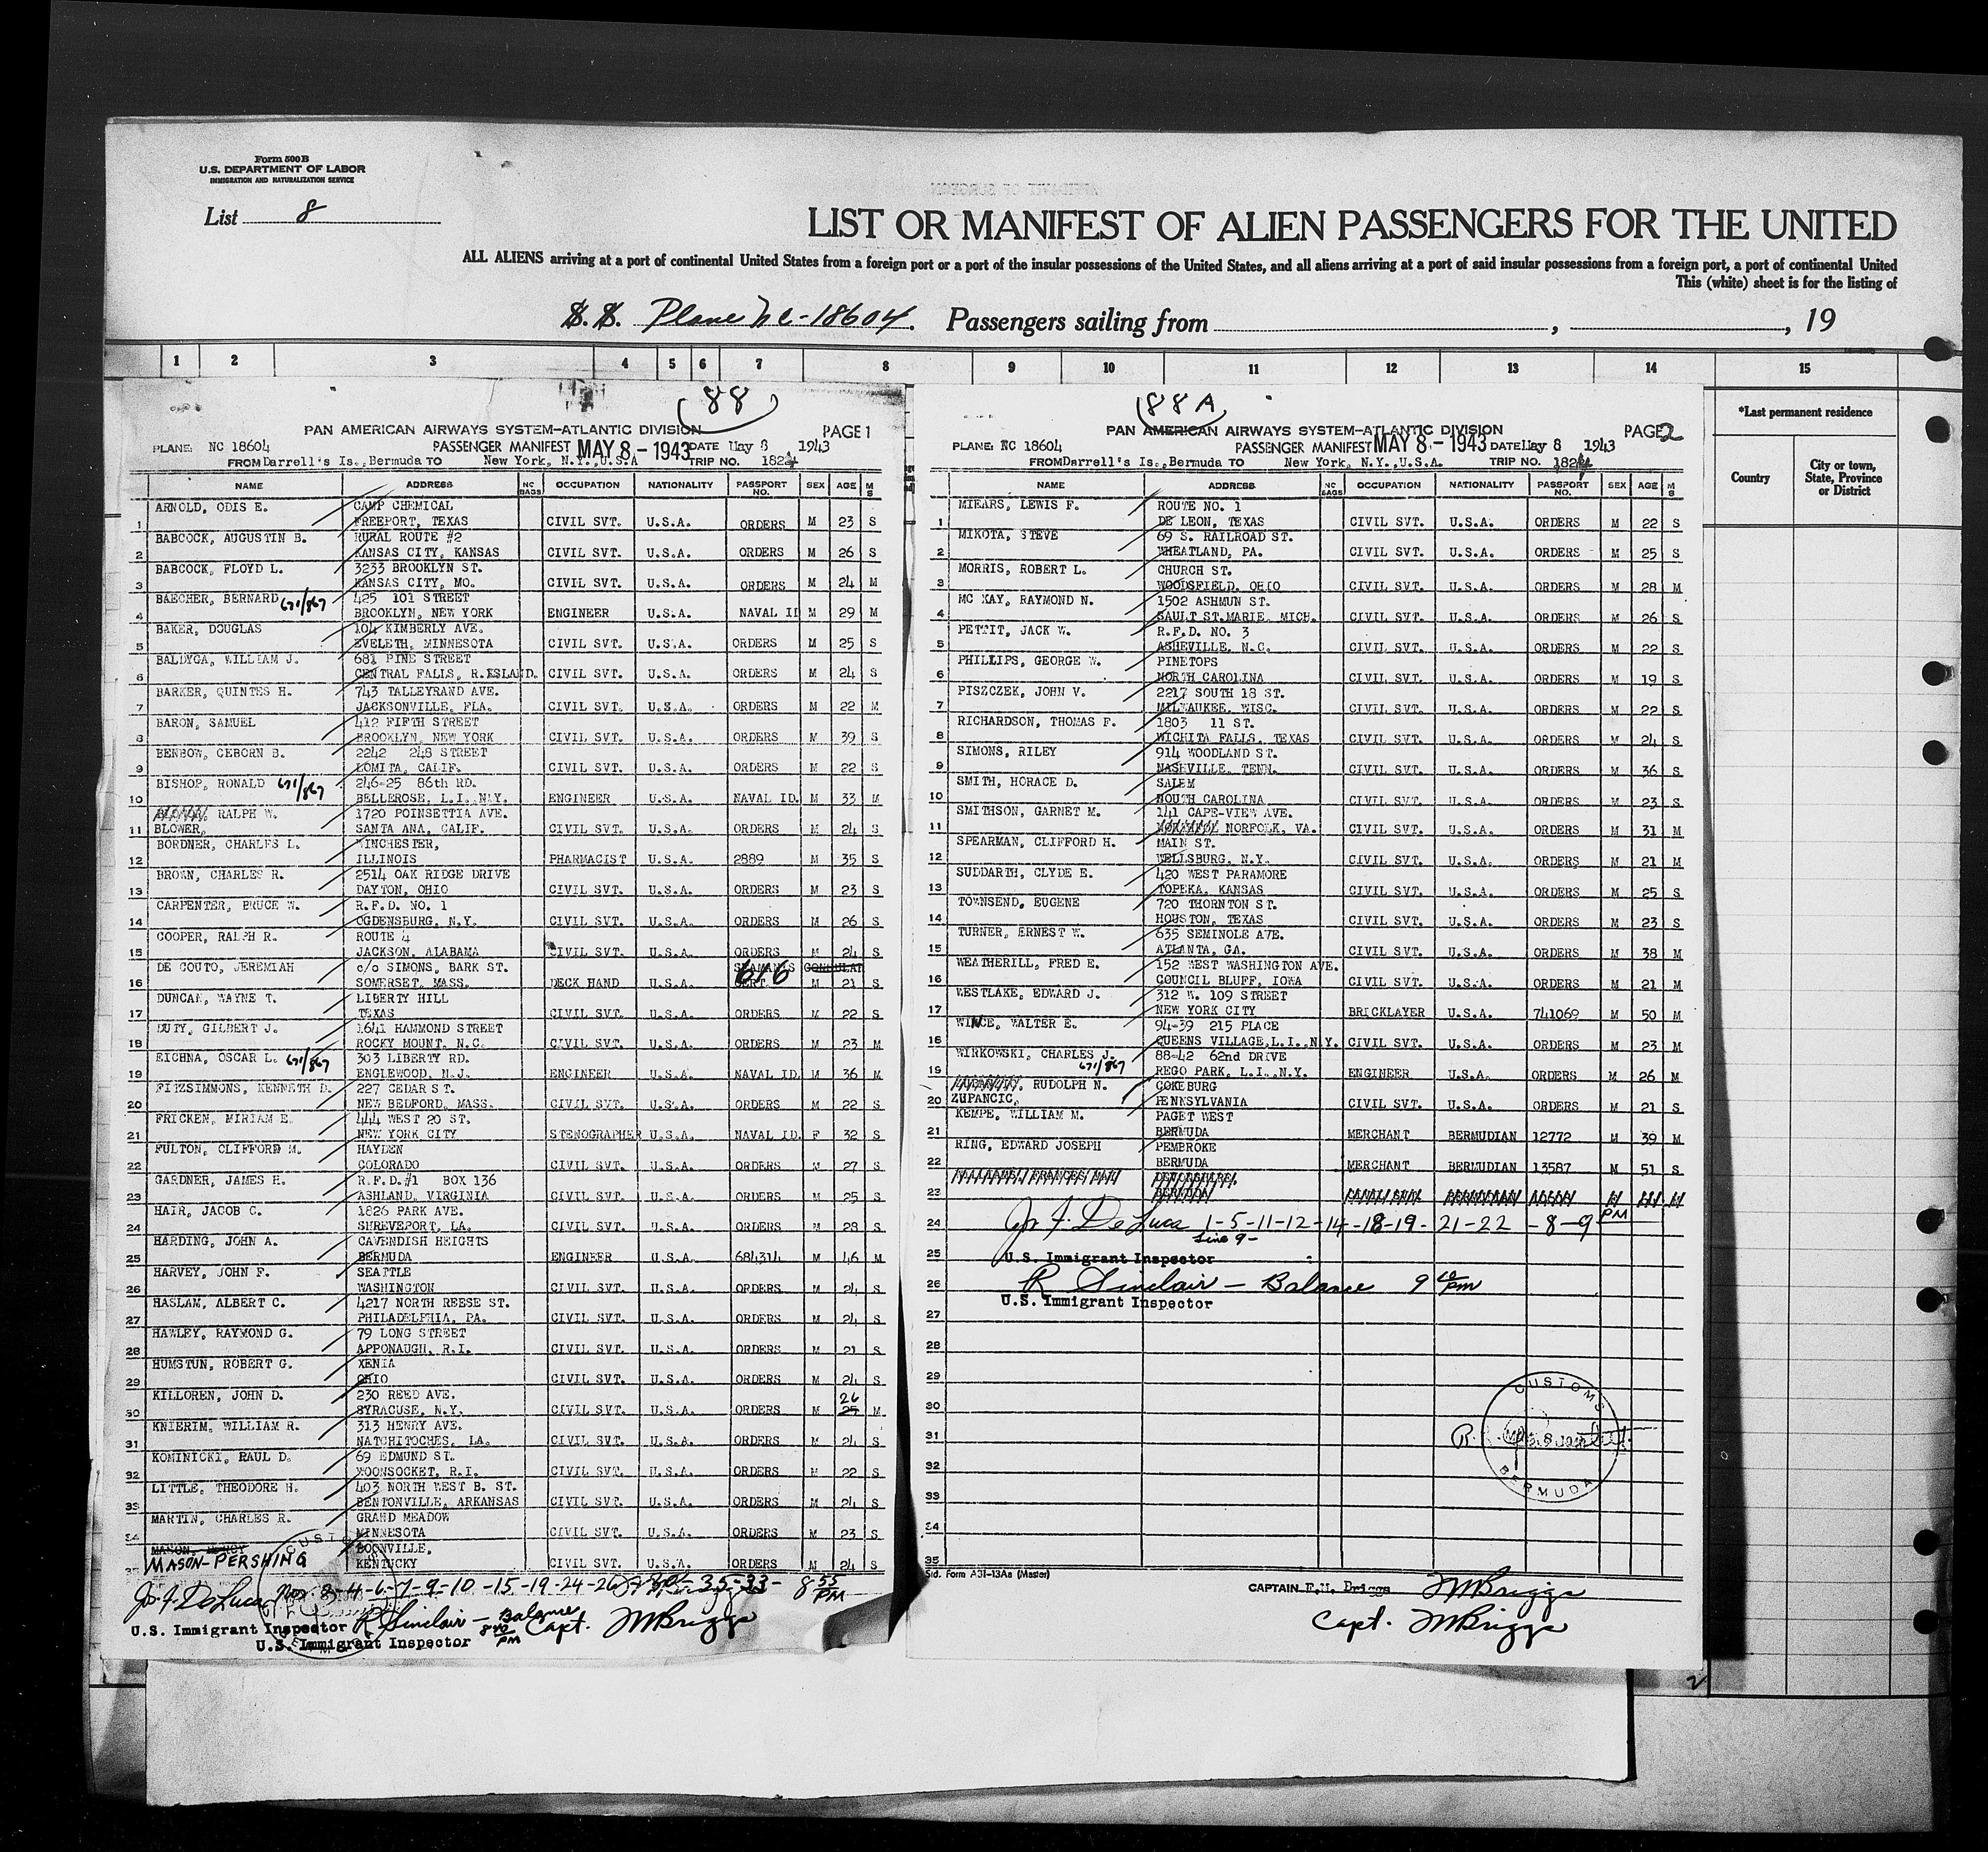 Form 500B
U.S. DEPARTMENT OF LABOR
IMMIGRATION AND NATURALIZATION SERVICE
List 8
LIST OR MANIFEST OF ALIEN PASSENGERS FOR THE UNITED
ALL ALIENS arriving at a port of continental United States from a foreign port or a port of the insular possessions of the United States, and all aliens arriving at a port of said insular possessions from a foreign port, a port of continental United
This (white) sheet is for the listing of
S.S. Plane NC-18604. Passengers sailing from , , 19
1 2 3 4 5 6 7 8 9 10 11 12 13 14 15
*Last permanent residence
Country
City or town, State, Province or District
88
PAN AMERICAN AIRWAYS SYSTEM-ATLANTIC DIVISION
PAGE 1
PLANE: NC 18604 PASSENGER MANIFEST MAY 8 - 1943 DATE May 8 1943
FROM Darrell's Is., Bermuda TO New York, N.Y., U.S.A TRIP NO. 182
NAME ADDRESS NC BAGS OCCUPATION NATIONALITY PASSPORT NO. SEX AGE M S
ARNOLD, ODIS E. CAMP CHEMICAL
1 FREEPORT, TEXAS CIVIL SVT. U.S.A. ORDERS M 23 S
BABCOCK, AUGUSTIN B. RURAL ROUTE #2
2 KANSAS CITY, KANSAS CIVIL SVT. U.S.A. ORDERS M 26 S
BABCOCK, FLOYD L. 3233 BROOKLYN ST.
3 KANSAS CITY, MO. CIVIL SVT. U.S.A. ORDERS M 24 M
BAECHER, BERNARD 671/867 425 101 STREET
4 BROOKLYN, NEW YORK ENGINEER U.S.A. NAVAL ID M 29 M
BAKER, DOUGLAS 104 KIMBERLY AVE.
5 EVELETH, MINNESOTA CIVIL SVT. U.S.A. ORDERS M 25 S
BALDYGA, WILLIAM J. 681 PINE STREET
6 CENTRAL FALLS, R.ESLAND. CIVIL SVT. U.S.A. ORDERS M 24 S
BARKER, QUINTES H. 743 TALLEYRAND AVE.
7 JACKSONVILLE, FLA. CIVIL SVT. U.S.A. ORDERS M 22 M
BARON, SAMUEL 412 FIFTH STREET
8 BROOKLYN, NEW YORK CIVIL SVT. U.S.A. ORDERS M 39 S
BENBOW, CEBORN B. 2242 248 STREET
9 LOMITA, CALIF. CIVIL SVT. U.S.A. ORDERS M 22 S
BISHOP, RONALD 671/867 246-25 86th RD.
10 BELLEROSE, L.I., N.Y. ENGINEER U.S.A. NAVAL ID. M 33 M
RALPH W. 1720 POINSETTIA AVE.
11 BLOWER, SANTA ANA, CALIF. CIVIL SVT. U.S.A. ORDERS M 24 S
BORDNER, CHARLES L. WINCHESTER,
12 ILLINOIS PHARMACIST U.S.A. 2889 M 35 S
BROWN, CHARLES R. 2514 OAK RIDGE DRIVE
13 DAYTON, OHIO CIVIL SVT. U.S.A. ORDERS M 23 S
CARPENTER, BRUCE W. R.F.D. NO. 1
14 OGDENSBURG, N.Y. CIVIL SVT. U.S.A. ORDERS M 26 S
COOPER, RALPH R. ROUTE 4
15 JACKSON, ALABAMA CIVIL SVT. U.S.A. ORDERS M 24 S
DE COUTO, JEREMIAH c/o SIMONS, BARK ST. SEAMANS CONSULAT
16 SOMERSET, MASS. DECK HAND U.S.A. CERT. 616 M 21 S
DUNCAN, WAYNE T. LIBERTY HILL
17 TEXAS CIVIL SVT. U.S.A. ORDERS M 22 S
DUTY, GILBERT J. 1641 HAMMOND STREET
18 ROCKY MOUNT, N.C. CIVIL SVT. U.S.A. ORDERS M 23 M
EICHNA, OSCAR L. 671/867 303 LIBERTY RD.
19 ENGLEWOOD, N.J. ENGINEER U.S.A. NAVAL ID. M 36 M
FITZSIMMONS, KENNETH D. 227 CEDAR ST.
20 NEW BEDFORD, MASS. CIVIL SVT. U.S.A. ORDERS M 22 S
FRICKEN, MIRIAM E. 444 WEST 20 ST.
21 NEW YORK CITY STENOGRAPHER U.S.A. NAVAL ID. F 32 S
FULTON, CLIFFORD M. HAYDEN
22 COLORADO CIVIL SVT. U.S.A. ORDERS M 27 S
GARDNER, JAMES H. R.F.D.#1 BOX 136
23 ASHLAND, VIRGINIA CIVIL SVT. U.S.A. ORDERS M 25 S
HAIR, JACOB C. 1826 PARK AVE.
24 SHREVEPORT, LA. CIVIL SVT. U.S.A. ORDERS M 28 S
HARDING, JOHN A. CAVENDISH HEIGHTS
25 BERMUDA ENGINEER U.S.A. 684314 M 46 M
HARVEY, JOHN F. SEATTLE
26 WASHINGTON CIVIL SVT. U.S.A. ORDERS M 24 S
HASLAM, ALBERT C. 4217 NORTH REESE ST.
27 PHILADELPHIA, PA. CIVIL SVT. U.S.A. ORDERS M 24 S
HAWLEY, RAYMOND G. 79 LONG STREET
28 APPONAUGH, R.I. CIVIL SVT. U.S.A. ORDERS M 21 S
HUMSTUN, ROBERT G. XENIA
29 OHIO CIVIL SVT. U.S.A. ORDERS M 24 S
KILLOREN, JOHN D. 230 REED AVE. 26
30 SYRACUSE, N.Y. CIVIL SVT. U.S.A. ORDERS M 25 M
KNIERIM, WILLIAM R. 313 HENRY AVE.
31 NATCHITOCHES, LA. CIVIL SVT. U.S.A. ORDERS M 24 S
KOMINICKI, RAUL D. 69 EDMUND ST.
32 WOONSOCKET, R.I. CIVIL SVT. U.S.A. ORDERS M 22 S
LITTLE, THEODORE H. 403 NORTH WEST B. ST.
33 BENTONVILLE, ARKANSAS CIVIL SVT. U.S.A. ORDERS M 24 S
MARTIN, CHARLES R. GRAND MEADOW
34 MINNESOTA CIVIL SVT. U.S.A. ORDERS M 23 S
MASON, BOONVILLE,
35 MASON-PERSHING KENTUCKY CIVIL SVT. U.S.A. ORDERS M 24 S
Jos. J. De Luca Nos. 3-4-6-7-9-10-15-19-24-26 35-33- 8 55 PM
U.S. Immigrant Inspector R Sinclair - Balance 8 40 PM Capt. MBriggs
U.S. Immigrant Inspector
88A
PAN AMERICAN AIRWAYS SYSTEM-ATLANTIC DIVISION
PAGE 2
PLANE: NC 18604 PASSENGER MANIFEST MAY 8 - 1943 DATE May 8 1943
FROM Darrell's Is., Bermuda TO New York, N.Y., U.S.A. TRIP NO. 182
NAME ADDRESS NC BAGS OCCUPATION NATIONALITY PASSPORT NO. SEX AGE M S
MIEARS, LEWIS F. ROUTE NO. 1
1 DE LEON, TEXAS CIVIL SVT. U.S.A. ORDERS M 22 S
MIKOTA, STEVE 69 S. RAILROAD ST.
2 WHEATLAND, PA. CIVIL SVT. U.S.A. ORDERS M 25 S
MORRIS, ROBERT L. CHURCH ST.
3 WOODSFIELD, OHIO CIVIL SVT. U.S.A. ORDERS M 28 M
MC KAY, RAYMOND N. 1502 ASHMUN ST.
4 SAULT ST.MARIE, MICH. CIVIL SVT. U.S.A. ORDERS M 26 S
PETTIT, JACK W. R.F.D. NO. 3
5 ASHEVILLE, N.C. CIVIL SVT. U.S.A. ORDERS M 22 S
PHILLIPS, GEORGE W. PINETOPS
6 NORTH CAROLINA CIVIL SVT. U.S.A. ORDERS M 19 S
PISZCZEK, JOHN V. 2217 SOUTH 18 ST.
7 MILWAUKEE, WISC. CIVIL SVT. U.S.A. ORDERS M 22 S
RICHARDSON, THOMAS F. 1803 11 ST.
8 WICHITA FALLS, TEXAS CIVIL SVT. U.S.A. ORDERS M 24 S
SIMONS, RILEY 914 WOODLAND ST.
9 NASHVILLE, TENN. CIVIL SVT. U.S.A. ORDERS M 36 S
SMITH, HORACE D. SALEM
10 SOUTH CAROLINA CIVIL SVT. U.S.A. ORDERS M 23 S
SMITHSON, GARNET M. 141 CAPE-VIEW AVE.
11 NORFOLK, VA. CIVIL SVT. U.S.A. ORDERS M 31 M
SPEARMAN, CLIFFORD H. MAIN ST.
12 WELLSBURG, N.Y. CIVIL SVT. U.S.A. ORDERS M 21 M
SUDDARTH, CLYDE E. 420 WEST PARAMORE
13 TOPEKA, KANSAS CIVIL SVT. U.S.A. ORDERS M 25 S
TOWNSEND, EUGENE 720 THORNTON ST.
14 HOUSTON, TEXAS CIVIL SVT. U.S.A. ORDERS M 23 S
TURNER, ERNEST W. 635 SEMINOLE AVE.
15 ATLANTA, GA. CIVIL SVT. U.S.A. ORDERS M 38 M
WEATHERILL, FRED E. 152 WEST WASHINGTON AVE.
16 COUNCIL BLUFF, IOWA CIVIL SVT. U.S.A. ORDERS M 21 M
WESTLAKE, EDWARD J. 312 W. 109 STREET
17 NEW YORK CITY BRICKLAYER U.S.A. 741069 M 50 M
WINCE, WALTER E. 94-39 215 PLACE
18 QUEENS VILLAGE, L.I., N.Y. CIVIL SVT. U.S.A. ORDERS M 23 M
WIRKOWSKI, CHARLES J. 88-42 62nd DRIVE
19 671/867 REGO PARK, L.I., N.Y. ENGINEER U.S.A. ORDERS M 26 M
RUDOLPH N. COKEBURG
20 ZUPANCIC, PENNSYLVANIA CIVIL SVT. U.S.A. ORDERS M 21 S
KEMPE, WILLIAM M. PAGET WEST
21 BERMUDA MERCHANT BERMUDIAN 12772 M 39 M
RING, EDWARD JOSEPH PEMBROKE
22 BERMUDA MERCHANT BERMUDIAN 13587 M 51 S
FRANCES MAY DEVONSHIRE,
23 BERMUDA BERMUDIAN M
24 Jos. J. De Luca 1-5-11-12-14-18-19-21-22 -8-9- PM
Line 9-
25 U.S. Immigrant Inspector
26 R Sinclair - Balance 9 PM
U.S. Immigrant Inspector
27
28
29
30
31
32
33
34
35
CUSTOMS
BERMUDA
Std. Form A31-13Aa (Master)
CAPTAIN MBriggs
Capt. MBriggs
2